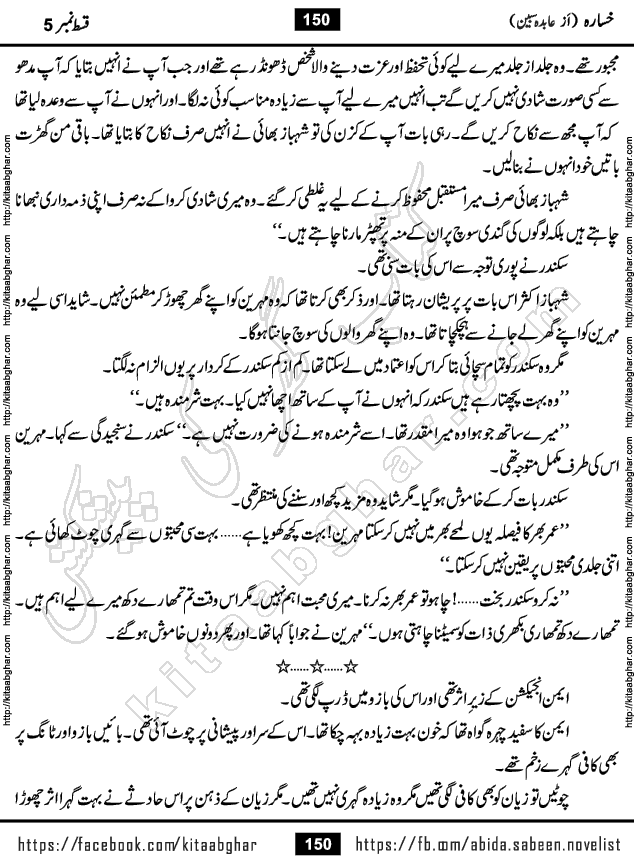 خسارہ (از عابدہ سبین)
150
قسط نمبر 5
مجبور تھے۔ وہ جلد از جلد میرے لیے کوئی تحفظ اور عزت دینے والا شخص ڈھونڈ رہے تھے اور جب آپ نے انہیں بتایا کہ آپ مدھو
سے کسی صورت شادی نہیں کریں گے تب انہیں میرے لیے آپ سے زیادہ مناسب کوئی نہ لگا۔ اور انہوں نے آپ سے وعدہ لیا تھا
کہ آپ مجھ سے نکاح کریں گے۔ رہی بات آپ کے کزن کی تو شہباز بھائی نے انہیں صرف نکاح کا بتایا تھا۔ باقی من گھڑت
باتیں خود انہوں نے بنا لیں۔
شہباز بھائی صرف میرا مستقبل محفوظ کرنے کے لیے یہ غلطی کر گئے۔ وہ میری شادی کروا کے نہ صرف اپنی ذمہ داری نبھانا
چاہتے ہیں بلکہ لوگوں کی گندی سوچ پر ان کے منہ پر تھپڑ مارنا چاہتے ہیں۔‘‘
سکندر نے پوری توجہ سے اس کی بات سنی تھی۔
شہباز اکثر اس بات پر پریشان رہتا تھا۔ اور ذکر بھی کرتا تھا کہ وہ مہرین کو اپنے گھر چھوڑ کر مطمئن نہیں۔ شاید اسی لیے وہ
مہرین کو اپنے گھر لے جانے سے ہچکچاتا تھا۔ وہ اپنے گھر والوں کی سوچ جانتا ہو گا۔
مگر وہ سکندر کو تمام سچائی بتا کر اس کو اعتماد میں لے سکتا تھا۔ کم از کم سکندر کے کردار پر یوں الزام نہ لگتا۔
’’وہ بہت پچھتا رہے ہیں سکندر کہ انہوں نے آپ کے ساتھ اچھا نہیں کیا۔ بہت شرمندہ ہیں۔‘‘
’’میرے ساتھ جو ہوا وہ میرا مقدر تھا۔ اسے شرمندہ ہونے کی ضرورت نہیں ہے۔‘‘ سکندر نے سنجیدگی سے کہا۔ مہرین
اس کی طرف مکمل متوجہ تھی۔
سکندر بات کر کے خاموش ہو گیا۔ مگر شاید وہ مزید کچھ اور سننے کی منتظر تھی۔
’’عمر بھر کا فیصلہ یوں لمحے بھر میں نہیں کر سکتا مہرین! بہت کچھ کھویا ہے...... بہت سی محبتوں سے گہری چوٹ کھائی ہے۔
اتنی جلدی محبتوں پر یقین نہیں کر سکتا۔‘‘
’’نہ کرو سکندر بخت......! چاہو تو عمر بھر نہ کرنا۔ میری محبت اہم نہیں۔ مگر اس وقت تم تمہارے دکھ میرے لیے اہم ہیں۔
تمہارے دکھ تمہاری بکھری ذات کو سمیٹنا چاہتی ہوں۔‘‘ مہرین نے جواباً کہا تھا۔ اور پھر دونوں خاموش ہو گئے۔
☆......☆......☆
ایمن انجیکشن کے زیر اثر تھی اور اس کی بازو میں ڈرپ لگی تھی۔
ایمن کا سفید چہرہ گواہ تھا کہ خون بہت زیادہ بہہ چکا تھا۔ اس کے سر اور پیشانی پر چوٹ آئی تھی۔ بائیں بازو اور ٹانگ پر
بھی کافی گہرے زخم تھے۔
چوٹیں تو زیان کو بھی کافی لگی تھیں مگر وہ زیادہ گہری نہیں تھیں۔ مگر زیان کے ذہن پر اس حادثے نے بہت گہرا اثر چھوڑا
http://kitaabghar.com http://kitaabghar.com http://kitaabghar.com http://kitaabghar.com http://kitaabghar.com http://kitaabghar.com
http://kitaabghar.com http://kitaabghar.com http://kitaabghar.com http://kitaabghar.com http://kitaabghar.com http://kitaabghar.com
کتاب گھر کی پیشکش
kitaabghar.com
https://facebook.com/kitaabghar
150
https://fb.com/abida.sabeen.novelist